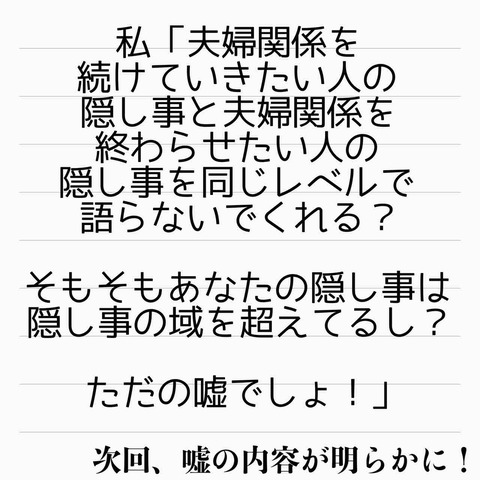 私「夫婦関係を
続けていきたい人の
隠し事と夫婦関係を
終わらせたい人の
隠し事を同じレベルで
語らないでくれる？
そもそもあなたの隠し事は
隠し事の域を超えてるし？
ただの嘘でしょ！」
次回、嘘の内容が明らかに！